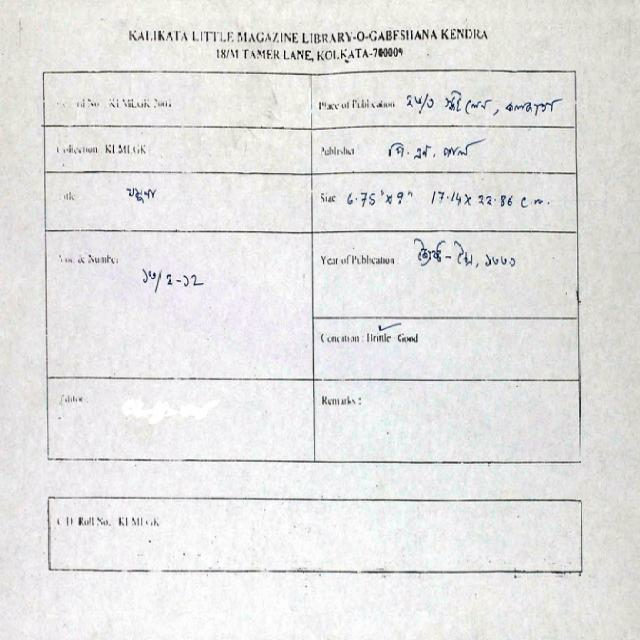 KALIKATA LITTLE MAGAZINE LIBRARY-O-GABESHANA KENDRA
18/M TAMER LANE, KOLKATA-700009
Record No. KLMLGK 2001
Place of Publication
Collection: KLMLGK
Publisher পি. এন.
Title যমুনা
Size 6.75"x9" 17.14x22.86 c.m.
Vol. & Number
১৬/২-১২
Year of Publication জ্যৈষ্ঠ-চৈত্র, ১৩৩১
Condition: Brittle Good
Editor:
Remarks:
C.D. Roll No. KLMLGK